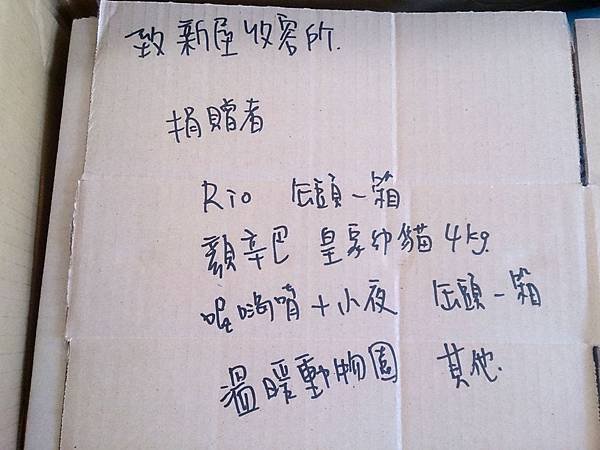 致 新屋收容所.
捐贈者
Rio 缶頭一箱
顏辛巴 皇家幼貓4kg.
喔嗨喲+小夜 缶頭一箱
溫暖動物園 其他.